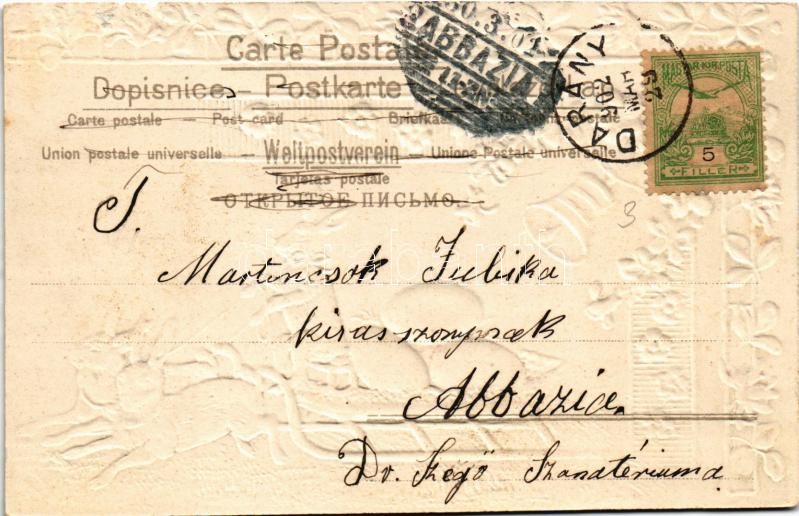 Carte Postale
Dopisnice - Postkarte -
Carte postale - Post card - Briefkaart
Union postale universelle - Weltpostverein - Unione Postale universelle
Tarjetas postale
ОТКРЫТОЕ ПИСЬМО
ABBAZIA
DARÁNY
902
29
MAGYAR KIR. POSTA
5
FILLER
3
T.
Martincsok Juliska
kirasszonynak
Abbazia
Dr. Szegő Szanatériuma
darabanth